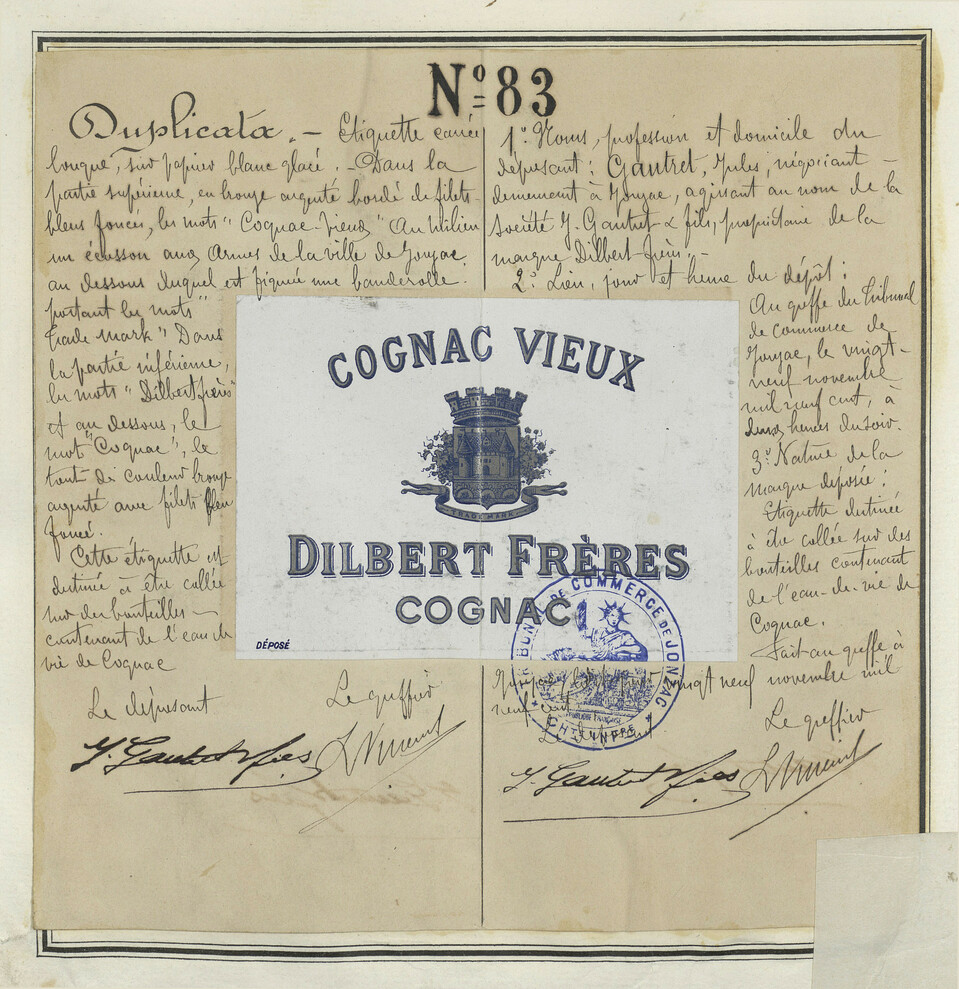 Nº 83
Duplicata. – Etiquette carrée
longue, sur papier blanc glacé. – Dans la
partie supérieure, en bronze argenté bordé de filets
bleus foncés, les mots "Cognac-Vieux" Au Milieu
un écusson aux Armes de la ville de Jonzac
au dessous duquel est figurée une banderolle
portant les mots "
trade mark" Dans
la partie inférieure,
les mots "Dilbert frères"
et au dessous, le
mot "Cognac", le
tout de couleur bronze
argenté avec filets bleu
foncé.
Cette étiquette est
destinée à être collée
sur des bouteilles –
contenant de l'eau de
vie de Cognac
Le déposant
Le greffier
J. Gautret & fils
LVincent
1º Noms, profession et domicile du
déposant : Gautret, Jules, négociant –
demeurant à Jonzac, agissant au nom de la
société J. Gautret & fils, propriétaire de la
marque Dilbert-frères. –
2º Lieu, jour et heure du dépôt :
Au greffe du Tribunal
de commerce de
Jonzac, le vingt-
neuf novembre
mil neuf cent, à
deux heures du soir.
3º Nature de la
marque déposée :
Etiquette destinée
à être collée sur des
bouteilles contenant
de l'eau-de-vie de
Cognac.
Fait au greffe à
vingt neuf novembre mil
neuf cent
Le déposant
Le greffier
J. Gautret & fils
LVincent
COGNAC VIEUX
TRADE MARK
DILBERT FRÈRES
COGNAC
DÉPOSÉ
TRIBUNAL DE COMMERCE DE JONZAC
RÉPUBLIQUE FRANÇAISE
CHTE INFRE